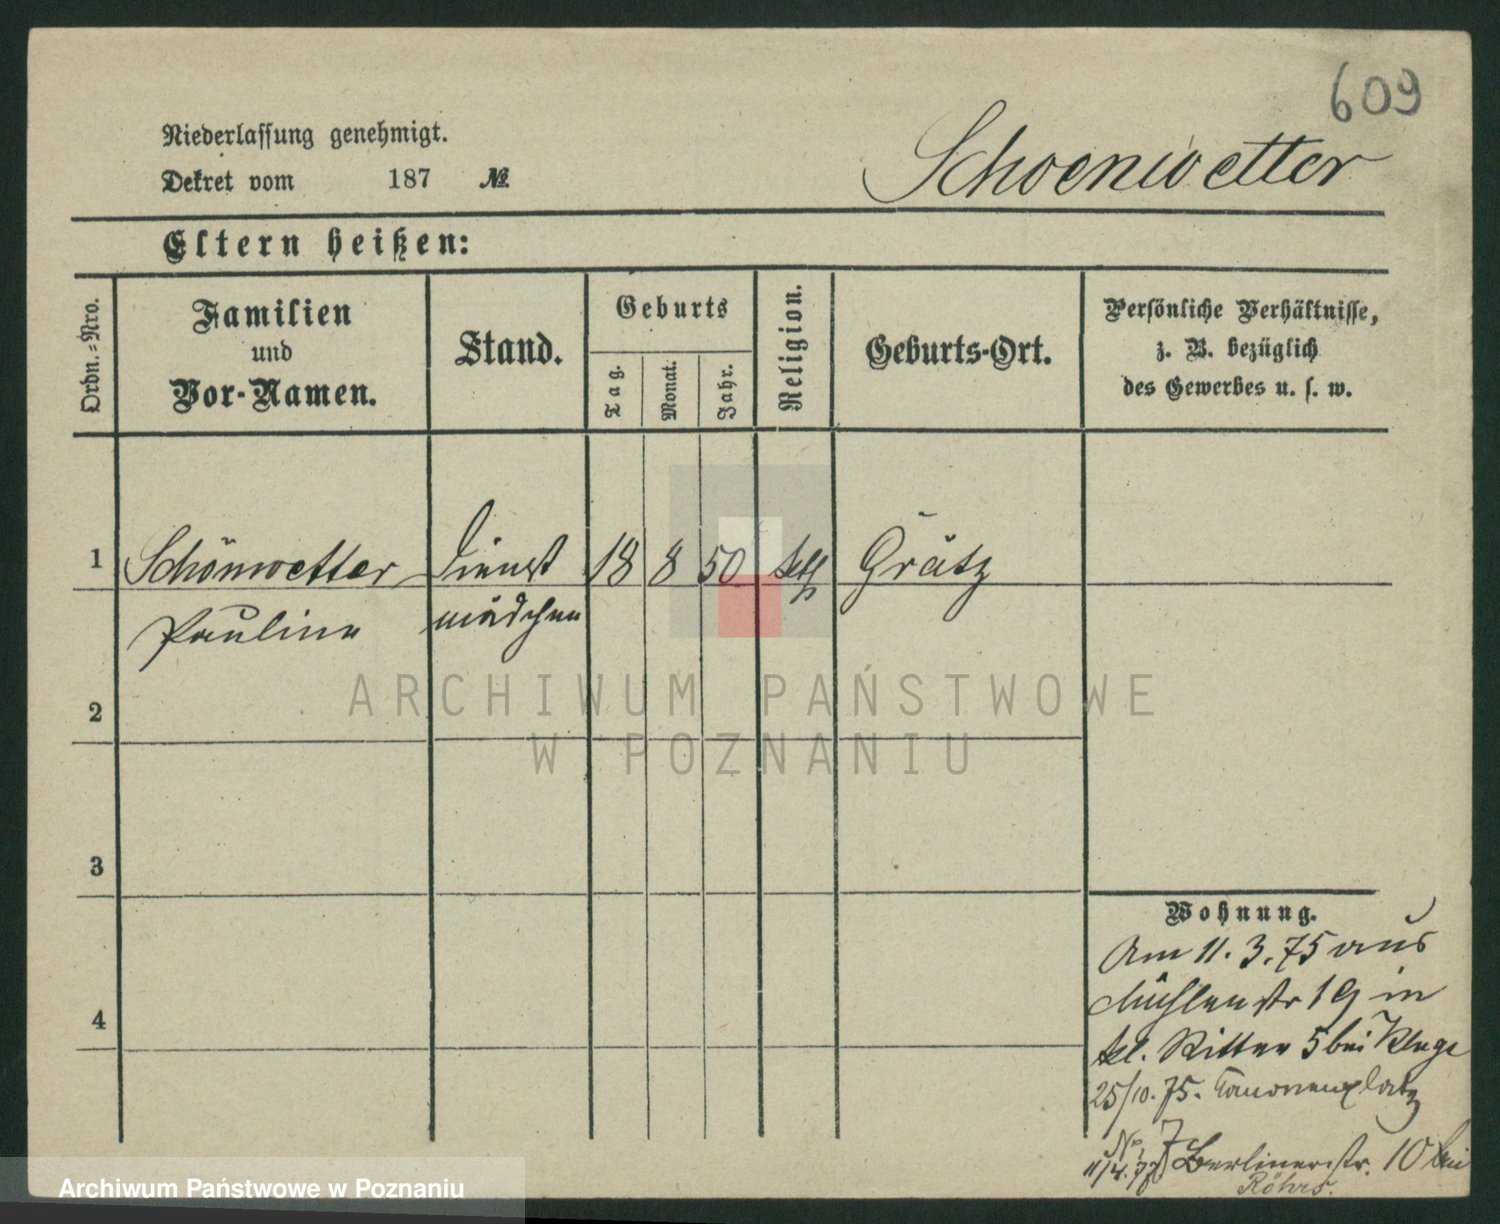 609
Niederlassung genehmigt.
Dekret vom 187 №
Schoenwetter
Eltern heißen:
Ordn.-Nro.
Familien
und
Vor-Namen.
Stand.
Geburts
Tag.
Monat.
Jahr.
Religion.
Geburts-Ort.
Persönliche Verhältnisse,
z. B. bezüglich
des Gewerbes u. s. w.
1 Schönwetter Dienst 18 8 50 kth Grätz
Pauline mädchen
2
3
4
Wohnung.
Am 11. 3. 75 aus
Mühlenstr 19 in
kl. Ritter 5 bei Kluge
25/10. 75. Kanonenplatz
No. 7
11/4. Berlinerstr. 10 bei
Röhrs.
ARCHIWUM PAŃSTWOWE
W POZNANIU
Archiwum Państwowe w Poznaniu